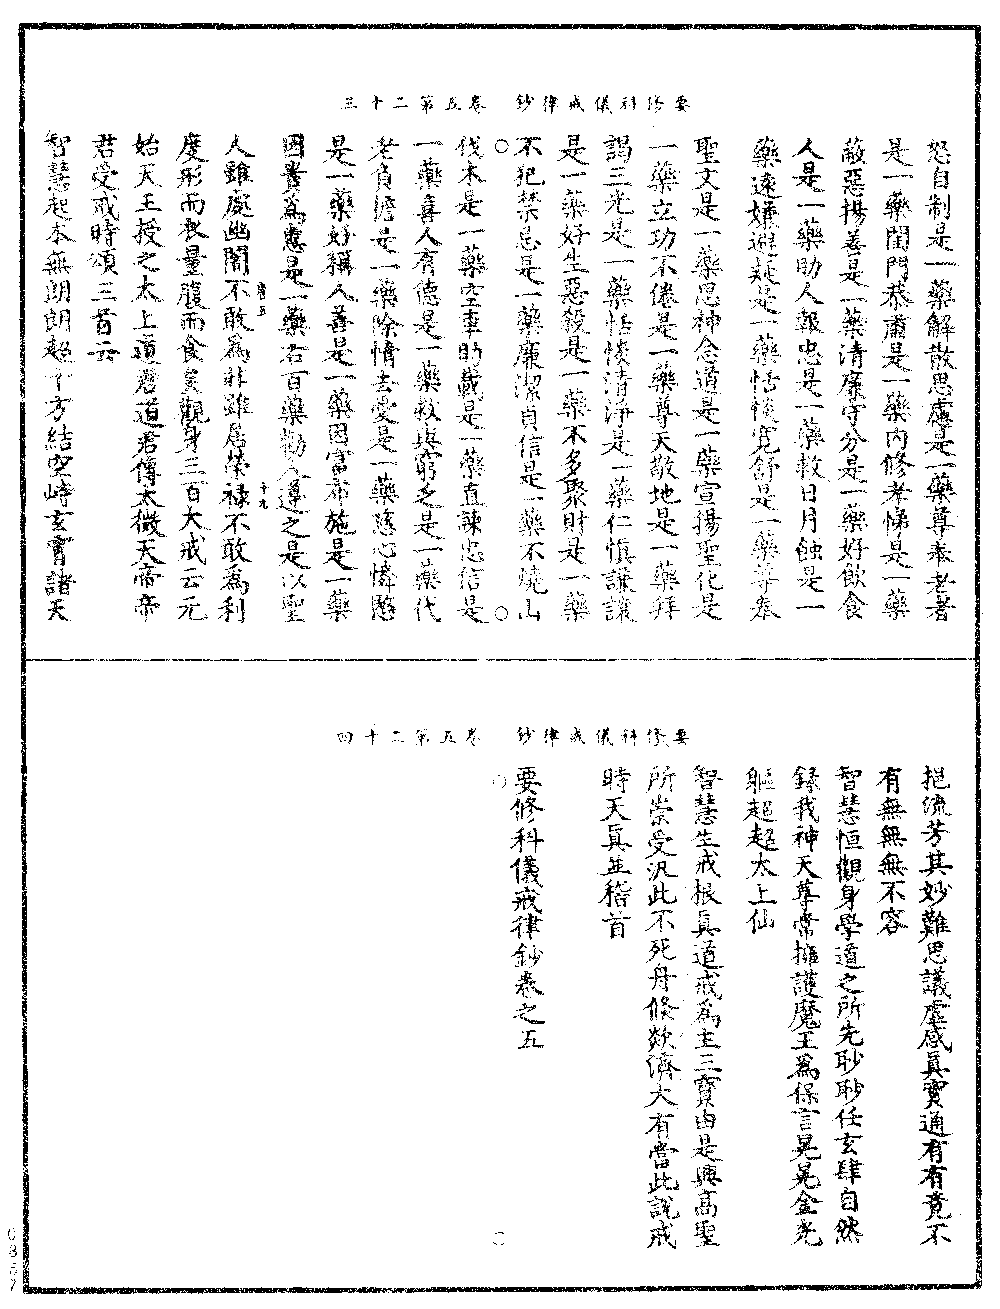 要修科儀戒律鈔　卷五第二十三
怒自制是一藥解散思慮是一藥尊奉老者
是一藥閨門恭肅是一藥內修孝悌是一藥
蔽惡揚善是一藥清廉守分是一藥好飲食
人是一藥助人報忠是一藥救日月蝕是一
藥遠嫌避疑是一藥恬惔寬舒是一藥尊奉
聖文是一藥思神念道是一藥宣揚聖化是
一藥立功不倦是一藥尊天敬地是一藥拜
謁三光是一藥恬惔清淨是一藥仁慎謙讓
是一藥好生惡殺是一藥不多聚財是一藥
不犯禁忌是一藥廉潔貞信是一藥不燒山
伐木是一藥空車助載是一藥直諫忠信是
一藥喜人有德是一藥救與窮乏是一藥代
老負擔是一藥除情去愛是一藥慈心憐愍
是一藥好稱人善是一藥因富布施是一藥
因貴為惠是一藥右百藥勸人遵之是以聖
人雖處幽闇不敢為非雖居榮祿不敢為利
度形而衣量腹而食矣觀身三百大戒云元
始天王授之太上道君道君傳太微天帝帝
君受戒時頌三首云
智慧起本無朗朗超十方結空峙玄霄諸天
要修科儀戒律鈔　卷五第二十四
挹流芳其妙難思議虛感真實通有有竟不
有無無無不容
智慧恒觀身學道之所先眇眇任玄肆自然
錄我神天尊常擁護魔王為保言晃晃金光
軀超超太上仙
智慧生戒根真道戒為主三寶由是興高聖
所崇受汎此不死舟倏欻濟大有當此說戒
時天真並稽首
要修科儀戒律鈔卷之五